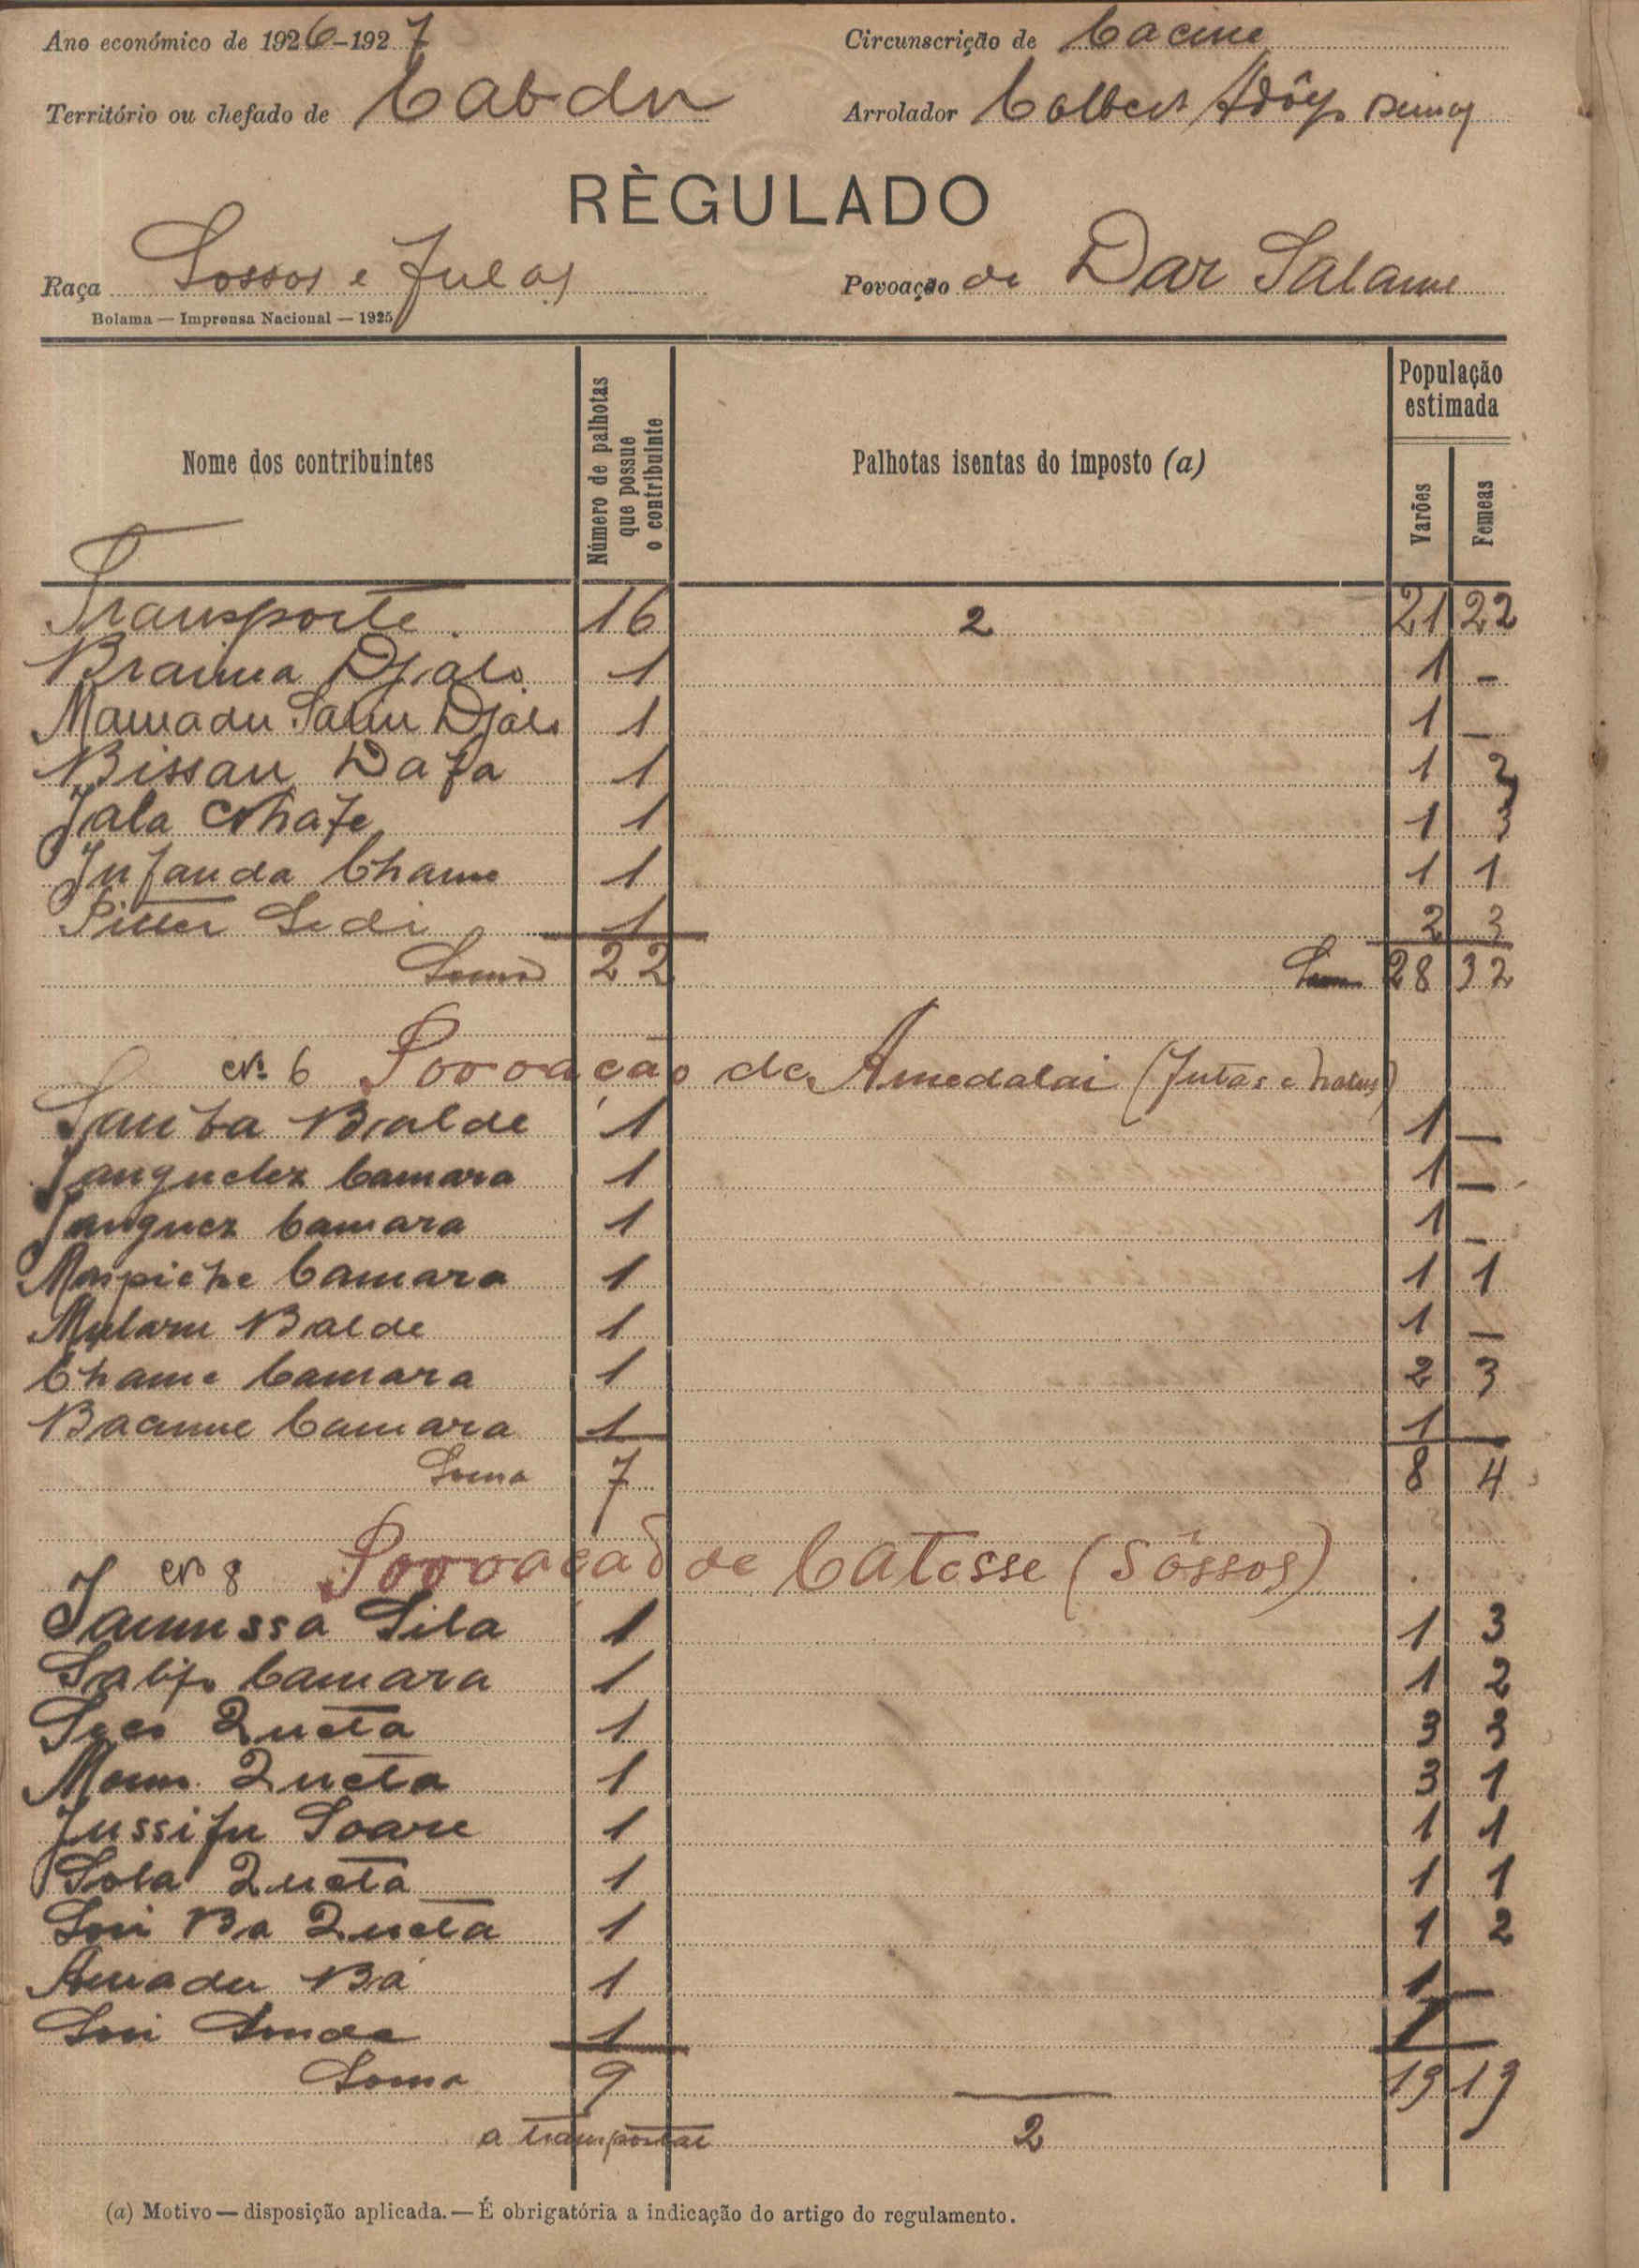 Ano económico de 1926-1927 Circunscrição de Cacine
Território ou chefado de Cabdu Arrolador Colbert
RÈGULADO
Raça Sossos e Fulas Povoação de Dar Salame
Bolama — Imprensa Nacional — 1925
Nome dos contribuintes Número de palhotas que possue o contribuinte Palhotas isentas do imposto (a) População estimada
Varões Femeas
Transporte 16 2 21 22
Braima Djalo 1 1 -
Mamadu Saliu Djalo 1 1 -
Bissau Dafa 1 1 3
Jala 1 1 3
Infanda Chame 1 1 1
Sedi 1 2 3
Soma 22 Soma 28 32
Nº 6 Povoação de Amedalai (Fulas e Nalus)
Balde 1 1 -
Camara 1 1 -
Camara 1 1 -
Camara 1 1 1
Mutaru Balde 1 1 -
Chame Camara 1 2 3
Camara 1 1 -
Soma 7 8 4
Nº 8 Povoação de Catesse (Sôssos)
Janussa Sila 1 1 3
Salifo Camara 1 1 2
Queta 1 3 3
Queta 1 3 1
Jussifu Soare 1 1 1
Queta 1 1 1
Sori Ba Queta 1 1 2
Amadu Bá 1 1 -
Sori 1 1 -
Soma 9 13 13
a transportar 2
(a) Motivo — disposição aplicada. — É obrigatória a indicação do artigo do regulamento.